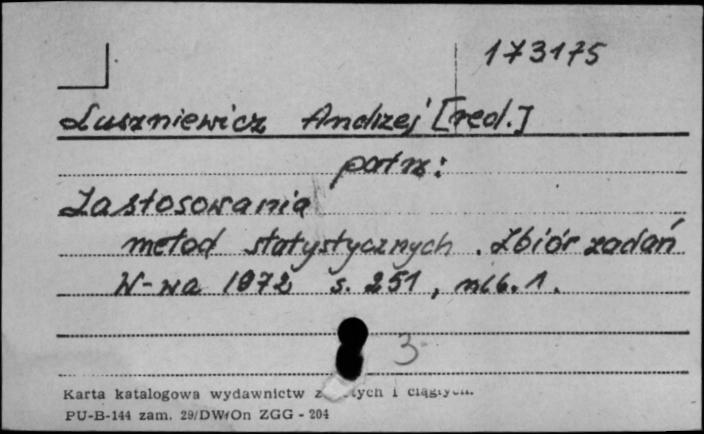 173175
Luszniewicz Andrzej [red.]
patrz:
Zastosowania
metod statystycznych. Zbiór zadań
W-wa 1972 s. 251, nlb. 1.
3
Karta katalogowa wydawnictw i
PU-B-144 zam. 29/DW/On ZGG - 204